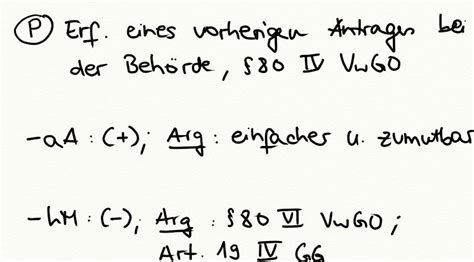 (P) Erf. eines vorherigen Antrages bei
der Behörde, §80 IV VwGO
-aA: (+); Arg: einfacher u. zumutbar
-hM: (-); Arg: §80 VI VwGO;
Art. 19 IV GG